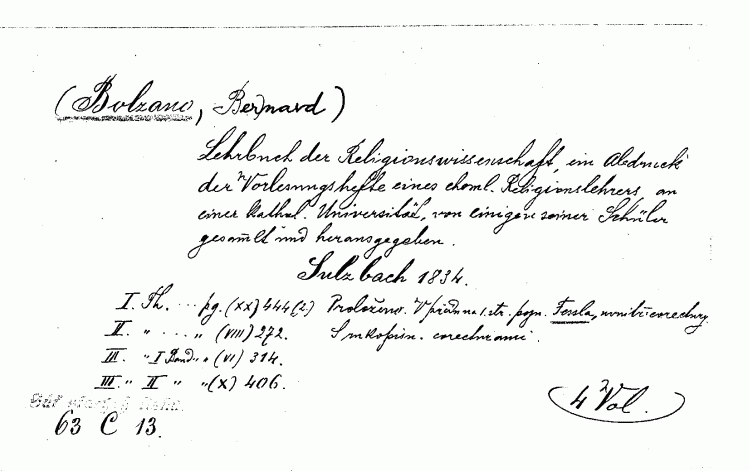 (Bolzano, Bernard)
Lehrbuch der Religionswissenschaft, ein Abdruck
der Vorlesungshefte eines ehml. Religionslehrers an
einer kathol. Universität, von einigen seiner Schüler
gesam̄lt und herausgegeben.
Sulzbach 1834.
I. Th. ... pg. (XX) 444 (2) Proloženo. V předu na 1. str. pozn. Fessla,
II. " ... " (VIII) 272. S rukopisn.
III. " I Band " " (VI) 314.
III. " II " " (X) 406.
4 Vol.
63 C 13.